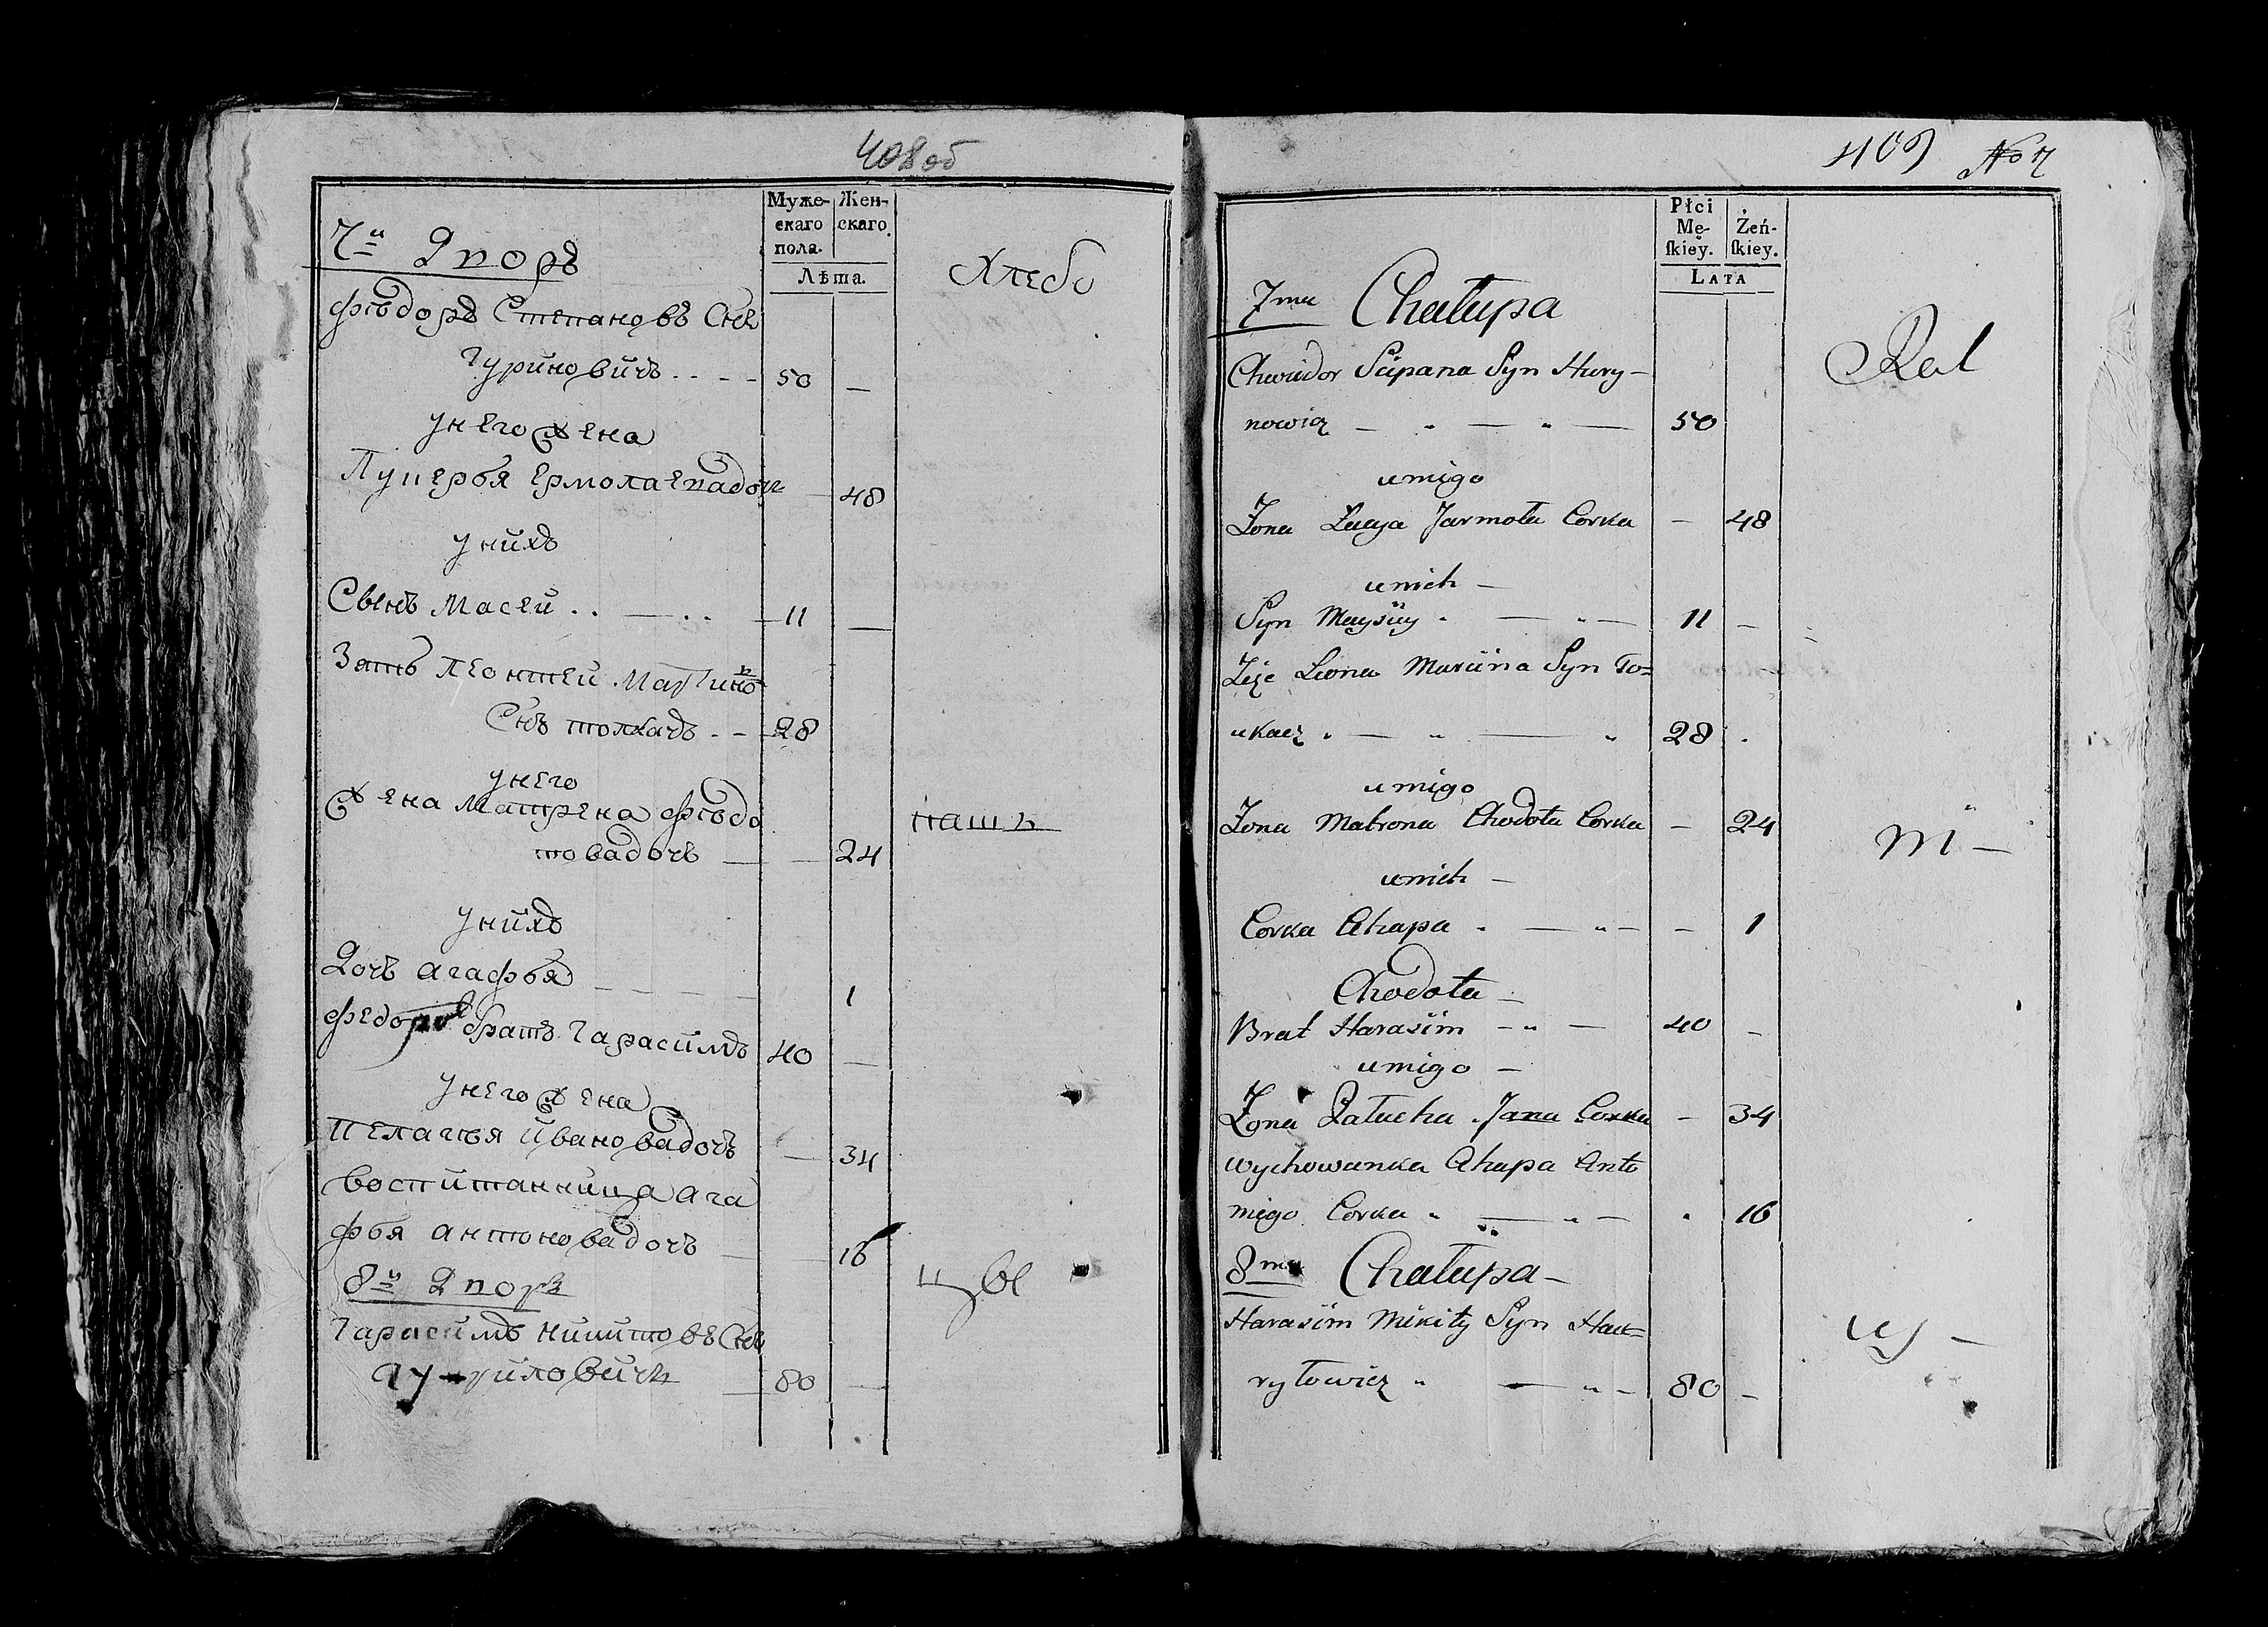 408 об
Муже-
скаго
пола.
Жен-
скаго
Лѣта.
7й Дворъ
Хлебо
Фіодоръ Степановъ Снъ
Гуриновичъ . . - - 50 —
У него жена
Лукерья Ермолаева дочь — 48
У нихъ
Сынъ Масей . . — . . — 11 —
Зать Леонтей Мартинов
Снъ толкачъ . - - 28
У него
Жена Матрена Фіодо
това дочь — — 24
паш
У нихъ
Дочъ агафья — — — — 1
Федоров братъ Гарасимъ 40 —
У него жена
Пелагея Ивановa дочъ — 34
воспитанница ага
фья антонова дочъ — — 16
цы
8й Дворъ
Гарасимъ Никитовъ Снъ
— 80 —
409 No 7
Płci
Mę-
ſkiey.
Żeń-
ſkiey.
LATA
7ma Chałupa
Rol
Chwiedor Sciepana Syn Hury-
nowicz — „ — „ — 50
u niego
Żona Jarmoła Corka — 48
u nich —
Syn Maysiey „ — „ — 11 —
Zięć Leona Marcina Syn To=
ukacz „ — „ — „ 28 .
u niego
Żona Matrona Chodota Corka — 24
ni —
u nich —
Corka Ahapa „ — „ — — 1
Chodota —
Brat Harasim — „ — 40 —
u niego —
Żona Jana Corka — 34
wychowanka Ahapa Anto
niego Corka „ — „ — „ 16
8ma Chałupa —
Harasim Mikity Syn Haw=
cy —
ryłowicz „ — „ — 80 —